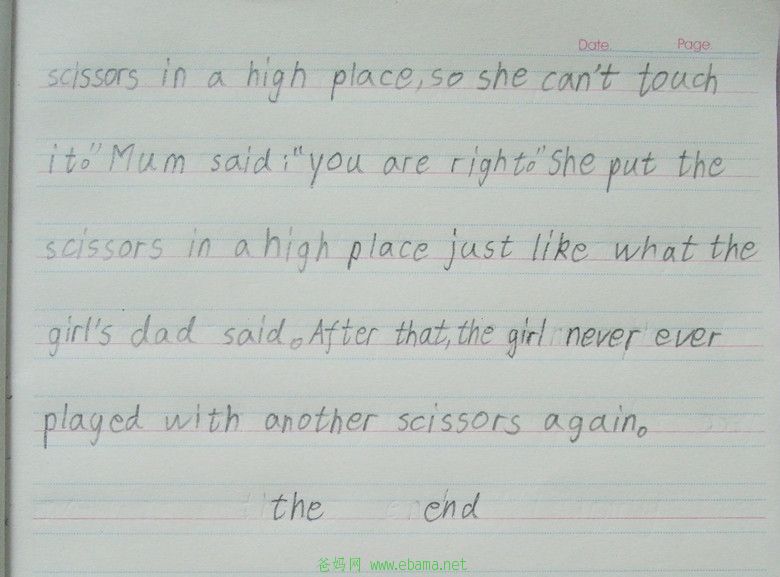 Date. Page.
scissors in a high place, so she can't touch
it。" Mum said : "you are right。" She put the
scissors in a high place just like what the
girl's dad said。After that, the girl never ever
played with another scissors again。
the end
爸妈网 www.ebama.net